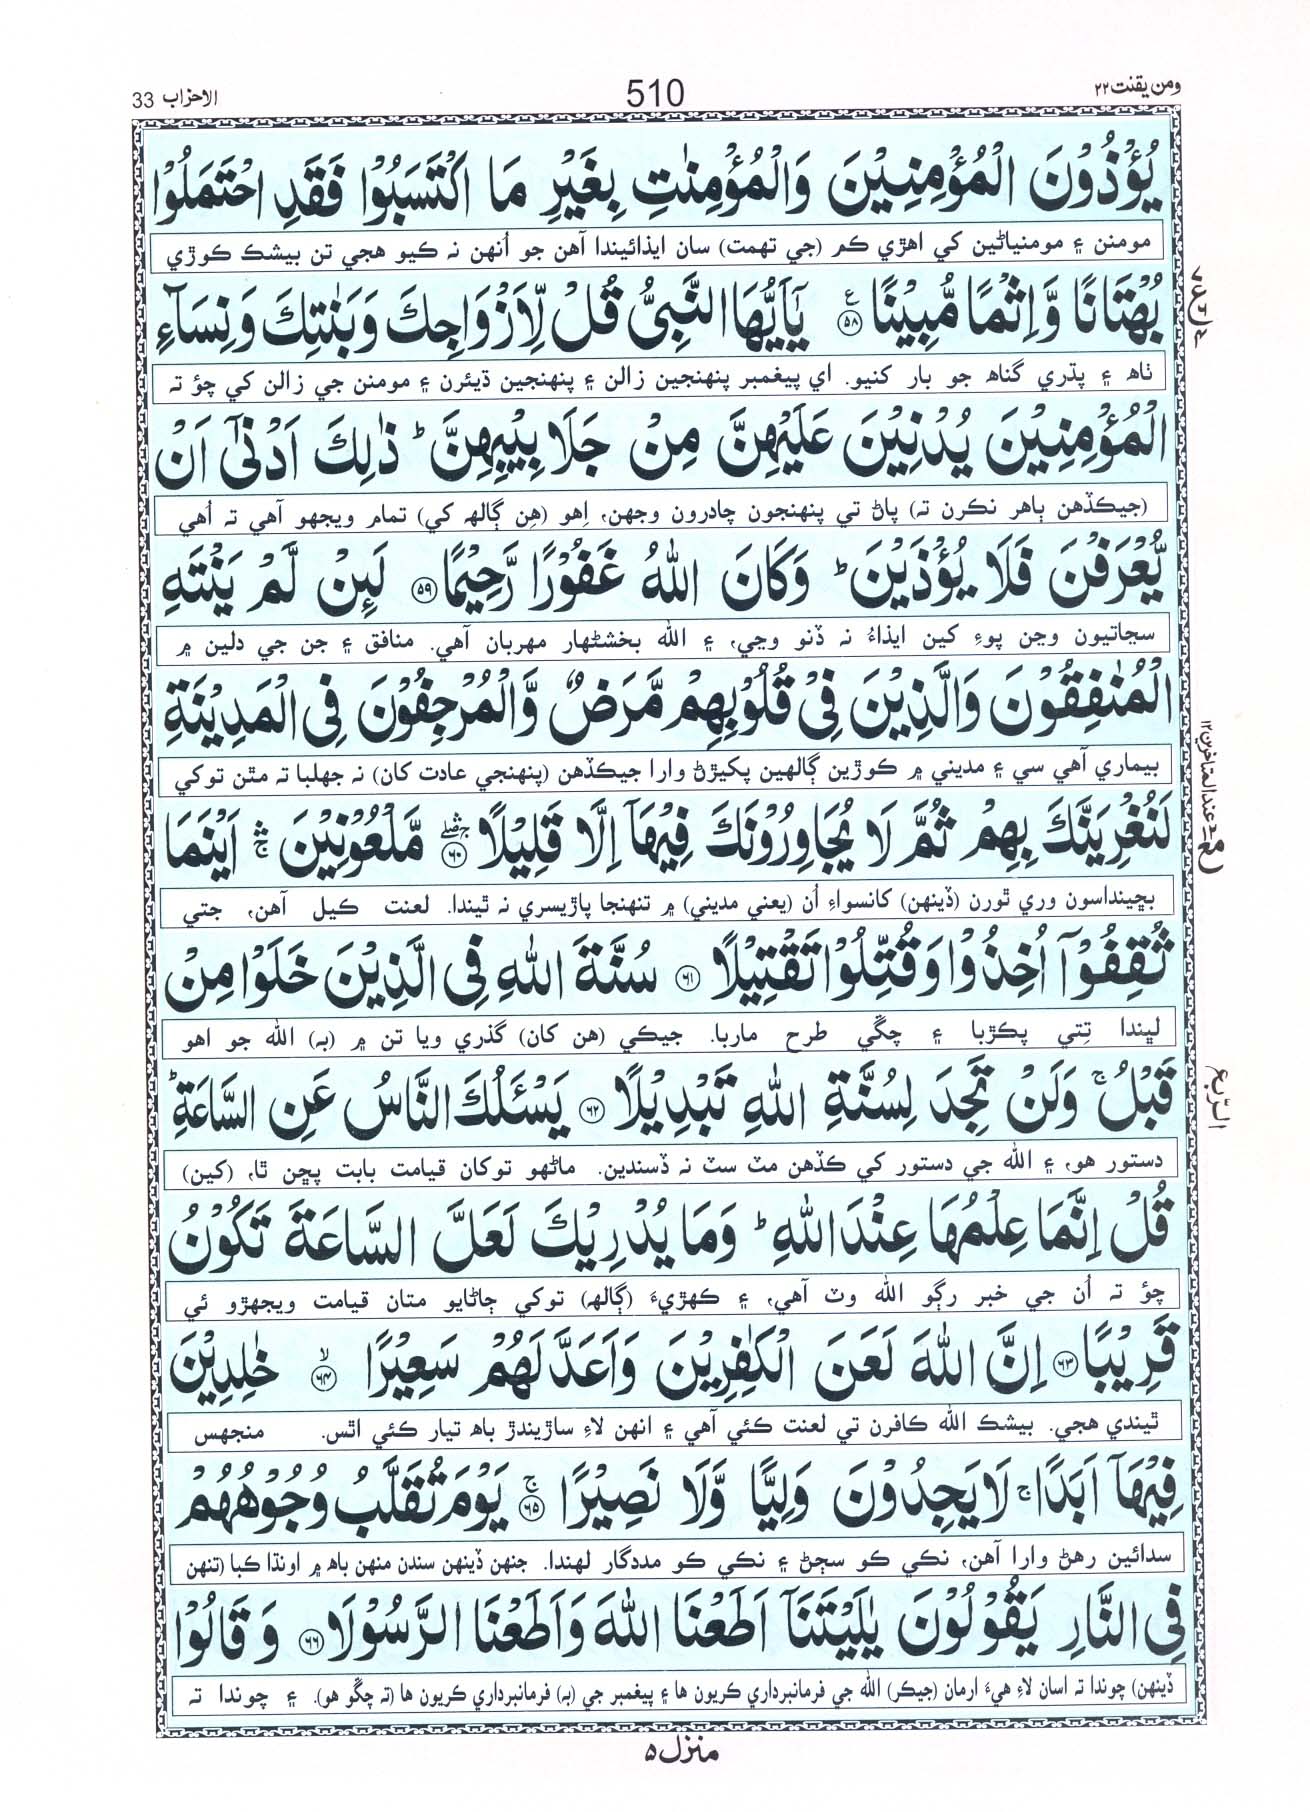 ومن يقنت ۲۲
510
الاحزاب 33
يُؤْذُوْنَ الْمُؤْمِنِيْنَ وَالْمُؤْمِنٰتِ بِغَيْرِ مَا اكْتَسَبُوْا فَقَدِ احْتَمَلُوْا
مومنن ۽ مومنياڻين کي اهڙي ڪم (جي تهمت) سان ايذائيندا آهن جو اُنهن نہ ڪيو هجي تن بيشڪ ڪوڙي
بُهْتَانًا وَّاِثْمًا مُّبِيْنًا ۵۸ ع يٰٓاَيُّهَا النَّبِىُّ قُلْ لِّاَزْوَاجِكَ وَبَنٰتِكَ وَنِسَآءِ
ٺاھ ۽ پڌري گناھ جو بار کنيو. اي پيغمبر پنهنجين زالن ۽ پنهنجين ڌيئرن ۽ مومنن جي زالن کي چؤ تہ
الْمُؤْمِنِيْنَ يُدْنِيْنَ عَلَيْهِنَّ مِنْ جَلَابِيْبِهِنَّ ؕ ذٰلِكَ اَدْنٰٓى اَنْ
(جيڪڏهن ٻاهر نڪرن تہ) پاڻ تي پنهنجون چادرون وجهن، اِهو (هِن ڳالهہ کي) تمام ويجهو آهي تہ اُهي
يُّعْرَفْنَ فَلَا يُؤْذَيْنَ ؕ وَكَانَ اللّٰهُ غَفُوْرًا رَّحِيْمًا ۵۹ لَىِٕنْ لَّمْ يَنْتَهِ
سڃاتيون وڃن پوءِ کين ايذاءُ نہ ڏنو وڃي، ۽ الله بخشڻهار مهربان آهي. منافق ۽ جن جي دلين ۾
الْمُنٰفِقُوْنَ وَالَّذِيْنَ فِىْ قُلُوْبِهِمْ مَّرَضٌ وَّالْمُرْجِفُوْنَ فِى الْمَدِيْنَةِ
بيماري آهي سي ۽ مديني ۾ ڪوڙين ڳالهين پکيڙڻ وارا جيڪڏهن (پنهنجي عادت کان) نہ جهلبا تہ مٿن توکي
لَنُغْرِيَنَّكَ بِهِمْ ثُمَّ لَا يُجَاوِرُوْنَكَ فِيْهَآ اِلَّا قَلِيْلًا ۶۰ مَّلْعُوْنِيْنَ ۚ اَيْنَمَا
بڇينداسون وري ٿورن (ڏينهن) کانسواءِ اُن (يعني مديني) ۾ تنهنجا پاڙيسري نہ ٿيندا. لعنت ڪيل آهن، جتي
ثُقِفُوْٓا اُخِذُوْا وَقُتِّلُوْا تَقْتِيْلًا ۶۱ سُنَّةَ اللّٰهِ فِى الَّذِيْنَ خَلَوْا مِنْ
لڀندا تِتي پڪڙبا ۽ چڱي طرح ماربا. جيڪي (هن کان) گذري ويا تن ۾ (بہ) الله جو اهو
قَبْلُ ۚ وَلَنْ تَجِدَ لِسُنَّةِ اللّٰهِ تَبْدِيْلًا ۶۲ يَسْـَٔلُكَ النَّاسُ عَنِ السَّاعَةِ ؕ
دستور هو، ۽ الله جي دستور کي ڪڏهن مٽ سٽ نہ ڏسندين. ماڻهو توکان قيامت بابت پڇن ٿا، (کين)
قُلْ اِنَّمَا عِلْمُهَا عِنْدَ اللّٰهِ ؕ وَمَا يُدْرِيْكَ لَعَلَّ السَّاعَةَ تَكُوْنُ
چؤ تہ اُن جي خبر رڳو الله وٽ آهي، ۽ ڪهڙيءَ (ڳالهہ) توکي ڄاڻايو متان قيامت ويجهڙو ئي
قَرِيْبًا ۶۳ اِنَّ اللّٰهَ لَعَنَ الْكٰفِرِيْنَ وَاَعَدَّ لَهُمْ سَعِيْرًا ۶۴ لا خٰلِدِيْنَ
ٿيندي هجي. بيشڪ الله ڪافرن تي لعنت ڪئي آهي ۽ انهن لاءِ ساڙيندڙ باھ تيار ڪئي اٿس. منجهس
فِيْهَآ اَبَدًا ۚ لَا يَجِدُوْنَ وَلِيًّا وَّلَا نَصِيْرًا ۶۵ ج يَوْمَ تُقَلَّبُ وُجُوْهُهُمْ
سدائين رهڻ وارا آهن، نڪي ڪو سڄڻ ۽ نڪي ڪو مددگار لهندا. جنهن ڏينهن سندن منهن باھ ۾ اونڌا ڪبا (تنهن
فِى النَّارِ يَقُوْلُوْنَ يٰلَيْتَنَآ اَطَعْنَا اللّٰهَ وَاَطَعْنَا الرَّسُوْلَا ۶۶ وَقَالُوْا
ڏينهن) چوندا تہ اسان لاءِ هيءَ ارمان (جيڪر) الله جي فرمانبرداري ڪريون ها ۽ پيغمبر جي (بہ) فرمانبرداري ڪريون ها (تہ چڱو هو). ۽ چوندا تہ
معـ عند المتاخرين ۱۲
الرّبع
منزل ۵